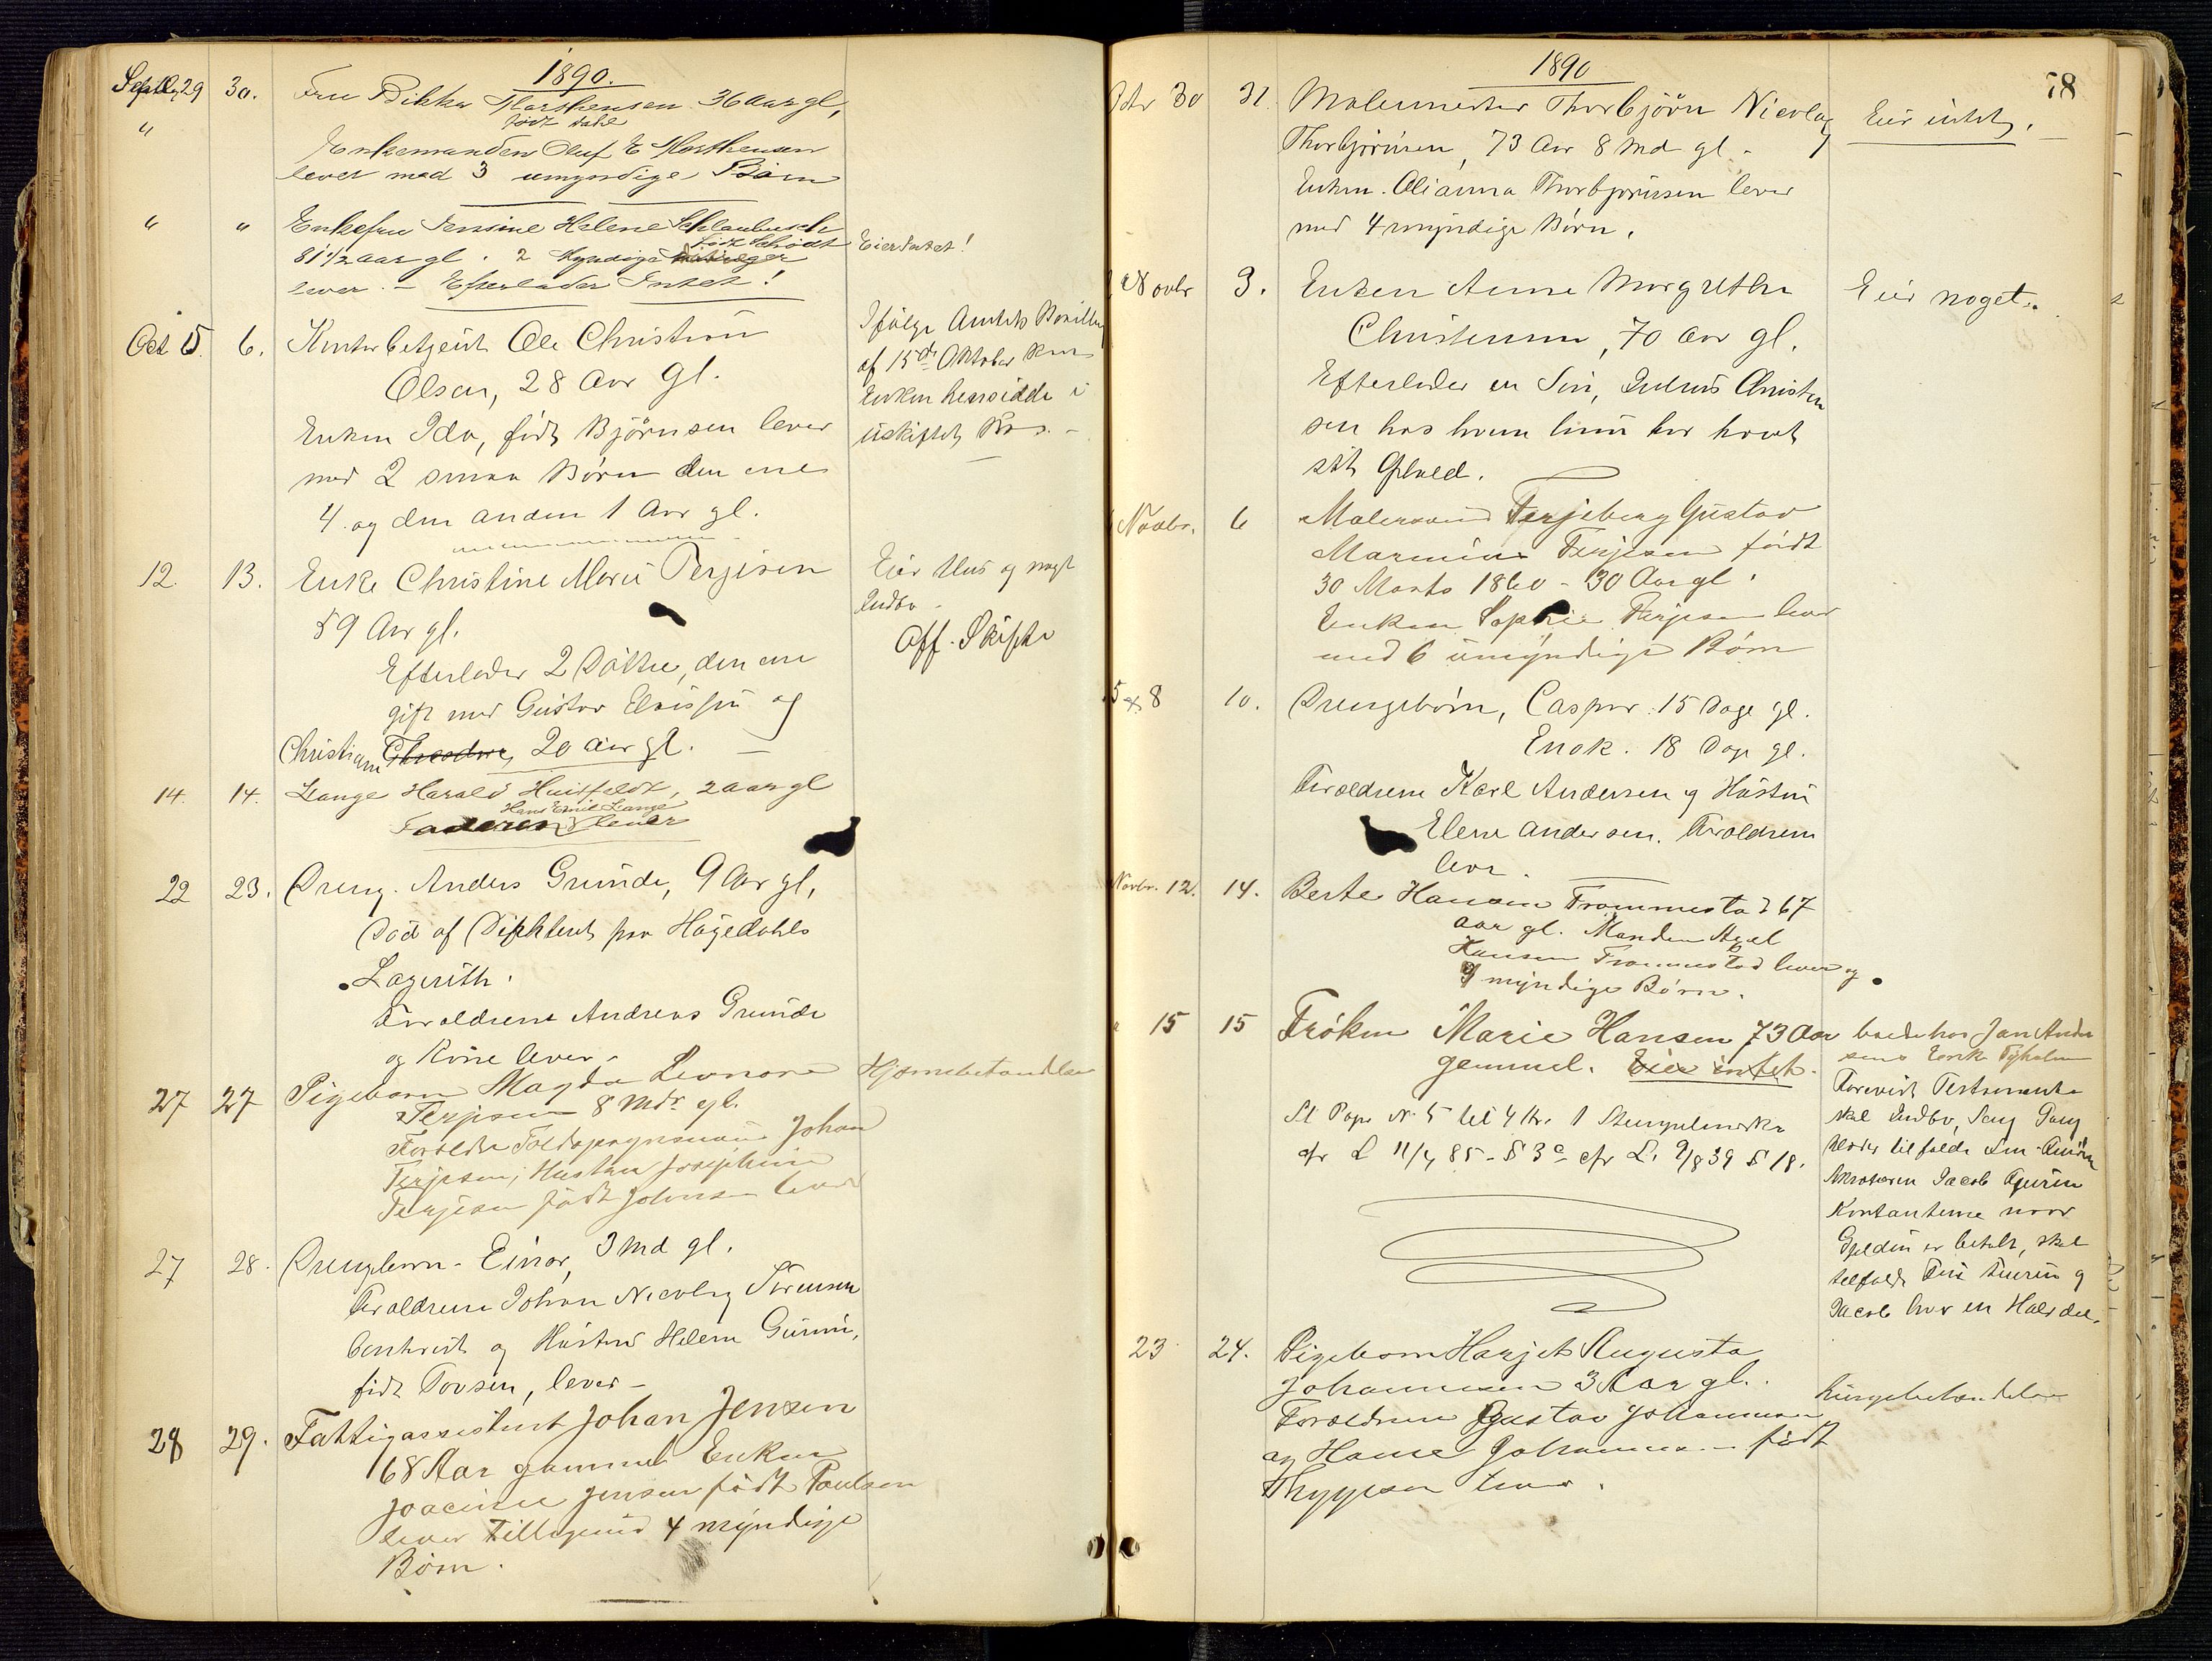 1890.
Septbr 29 30. Fru Rikka Marthensen 36 aar gl,
født Dahl
" Enkemanden Oluf E Marthensen
lever med 3 umyndige Børn
" " Enkefru Jensine Helene
født Schiødt
81 1/2 aar gl. 2 Myndige
lever. - Efterlader Intet!
Eier Intet!
Oct 5. 6. Kontorbetjent Ole Christian
Olsen, 28 Aar gl.
Enken Ida, født Bjørnsen lever
med 2 smaa Børn den ene
4 og den anden 1 Aar gl.
Ifølge Amtets Bevilling
af 15de Oktober kan
Enken hensidde i
uskiftet Bo. -
12. 13. Enke Christine Marie Terjesen
59 Aar gl.
Efterlader 2 Døttre, den ene
gift med Gustav og
Christiane Theodora, 20 aar gl. -
Eier Hus og noget
Indbo -
Off. Skifte
14. 14. Lange Harald Huitfeldt, 2 aar gl
Hans Emil Lange
Faderen lever
22 23. Dreng. Anders Grunde, 9 Aar gl,
Død af Difthterit paa Høgedahls
Lazerith.
Foraldrene Andreas Grunde
og Kone lever -
27 27 Pigebarn Magda Leonora
Terjesen 8 Mdr gl.
Forældre Johan
Terjesen, Hustru Josephine
Terjesen født Johnsen lever
Hjemmebehandler
27 28. Drengebarn - Einar, 3 Md gl.
Foraldrene Johan Nicolay Sørensen
og Hustru Helene
født Tovsen, lever -
28 29. Fattigassistent Johan Jensen
68 Aar gammel Enken
Joacime Jensen født Paulsen
lever Tilligemed 4 myndige
Børn.
1890
78
Octr 30 31. Malermester Thorbjörn Nicolay
Thorbjörnsen, 73 Aar 8 Md gl -
Enken. Olianna Thorbjørnsen lever
med 4 myndige Børn.
Eier intet.
Novbr 3. Enken Anne Margrethe
Christensen, 70 Aar gl.
Efterlader en Søn, Julius Christen
sen hos hvem hun har havt
sit Ophold.
Eier noget.
Novbr. 6 Malersvend Terjeberg Gustav
Marinius Terjesen født
30 Marts 1860 - 30 Aar gl.
Enken Sophie Terjesen lever
med 6 umyndige Børn
5 & 8 10. Drengebørn, Caspar. 15 Dage gl.
Enok. 18 Dage gl.
Foraldrene Karl Andersen og Hustru
Elene Andersen. Foraldrene
lever.
Novbr. 12. 14. Berte Hansen Frommestad 67
aar gl. Manden Axel
Hansen Frommestad lever og
9 myndige Børn.
" 15 15 Frøken Marie Hansen 73 Aar
gammel. Eier intet.
St Papr No 5 til 4 Kr. 1 Stempelmærke
cfr L 11/7 85 - § 3 c cfr L. 9/8 39 § 18.
boede hos Jan Ander
sens Enke Tyholmen
Forevist Testamente
skal Indbo, Seng Gang
klæder tilfalde
Jacob
Kontanterne naar
Gjelden er betalt, skal
tilfalde og
Jacob hver en Halvdel.
23 24. Pigebarn Harjet Augusta
Johannesen 3 Aar gl.
Forældrene Gustav Johannesen
og Hanne Johannesen født
Thygesen lever.